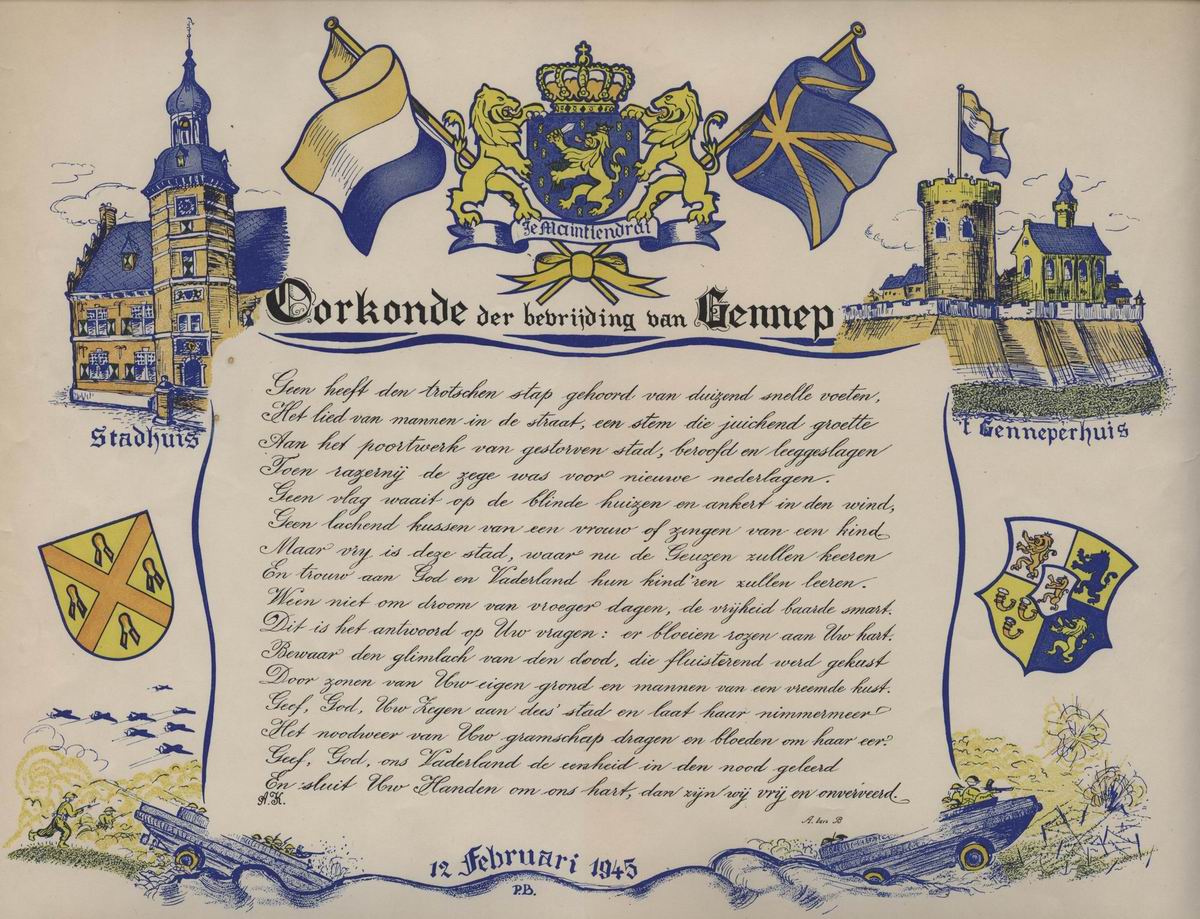 Je Maintiendrai
Oorkonde der bevrijding van Gennep
Stadhuis
't Genneperhuis
Geen heeft den trotschen stap gehoord van duizend snelle voeten,
Het lied van mannen in de straat, een stem die juichend groette
Aan het poortwerk van gestorven stad, beroofd en leeggeslagen
Toen razernij de zege was voor nieuwe nederlagen.
Geen vlag waait op de blinde huizen en ankert in den wind,
Geen lachend kussen van een vrouw of zingen van een kind
Maar vrij is deze stad, waar nu de Geuzen zullen keeren
En trouw aan God en Vaderland hun kind'ren zullen leeren.
Ween niet om droom van vroeger dagen, de vrijheid baarde smart.
Dit is het antwoord op Uw vragen: er bloeien rozen aan Uw hart.
Bewaar den glimlach van den dood, die fluisterend werd gekust
Door zonen van Uw eigen grond en mannen van een vreemde kust.
Geef, God, Uw Zegen aan dees' stad en laat haar nimmermeer
Het noodweer van Uw gramschap dragen en bloeden om haar eer.
Geef, God, ons Vaderland de eenheid in den nood geleerd
En sluit Uw Handen om ons hart, dan zijn wij vrij en onverveerd.
A.K.
A. ten B
12 Februari 1945
P.B.